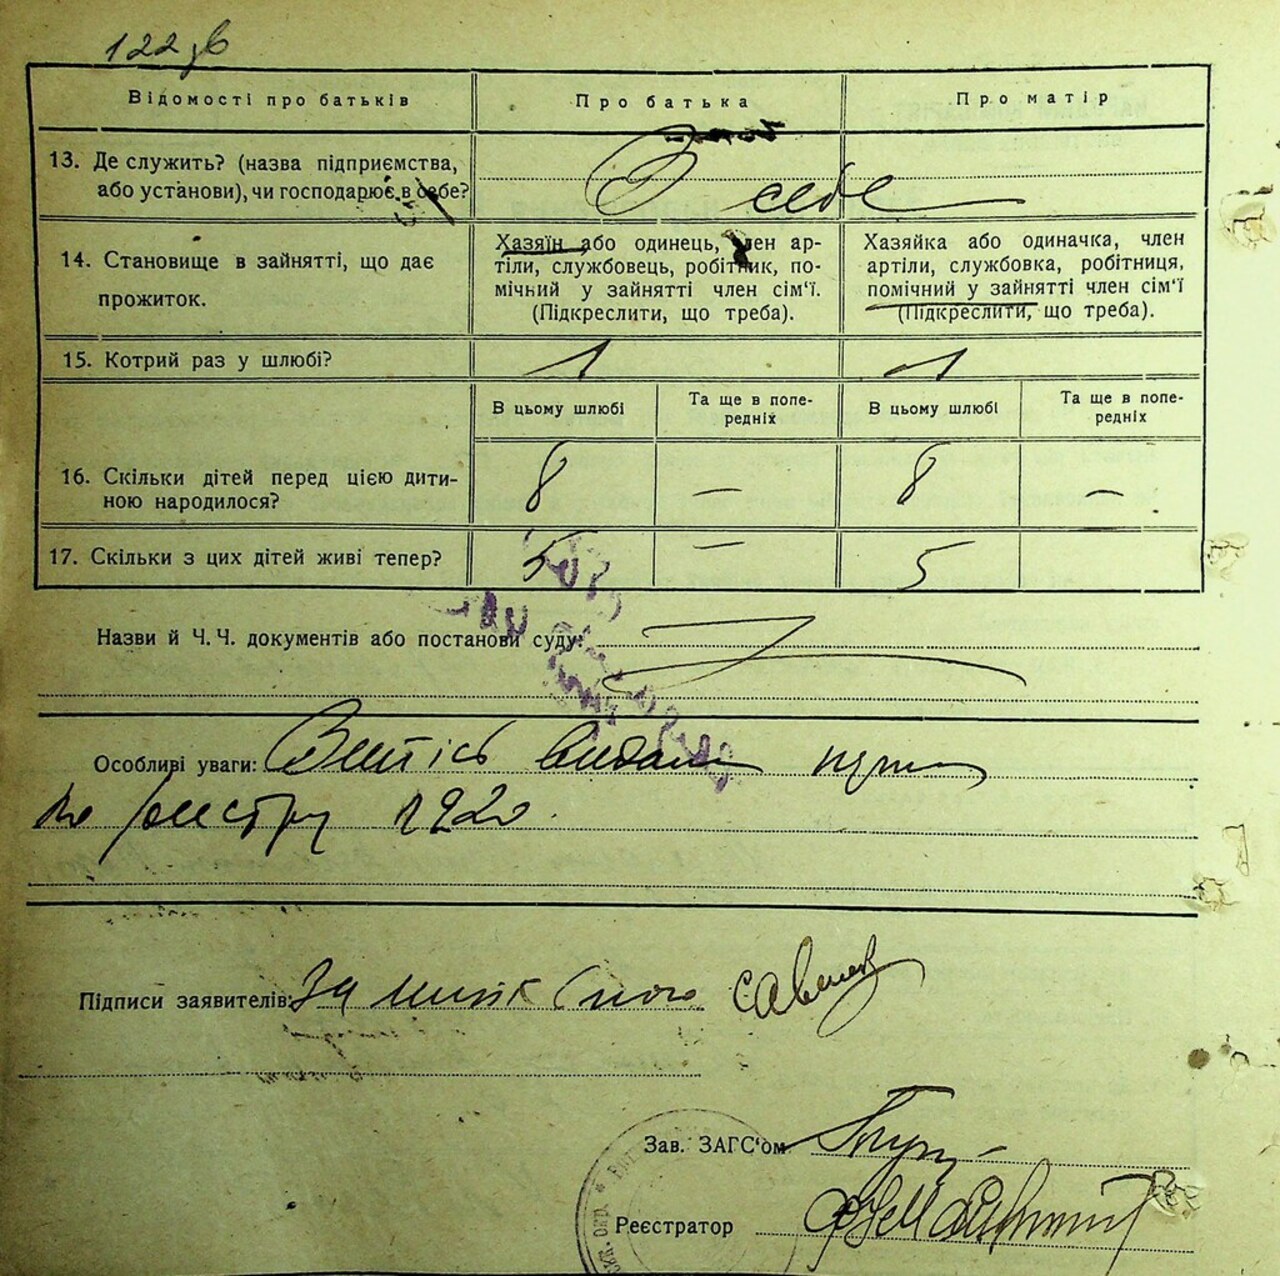 122 зв
Відомості про батьків
Про батька
Про матір
13. Де служить? (назва підприємства,
або установи), чи господарює в себе?
В себе
14. Становище в зайнятті, що дає
прожиток.
Хазяїн або одинець, член ар-
тіли, службовець, робітник, по-
мічний у зайнятті член сім'ї.
(Підкреслити, що треба).
Хазяйка або одиначка, член
артіли, службовка, робітниця,
помічний у зайнятті член сім'ї
(Підкреслити, що треба).
15. Котрий раз у шлюбі?
1
1
В цьому шлюбі
Та ще в попе-
редніх
В цьому шлюбі
Та ще в попе-
редніх
16. Скільки дітей перед цією дити-
ною народилося?
8
—
8
—
17. Скільки з цих дітей живі тепер?
5
—
5
Назви й Ч. Ч. документів або постанови суду:
Особливі уваги:
по реєстру 1920.
Підписи заявителів:
Зав. ЗАГС'ом
Реєстратор